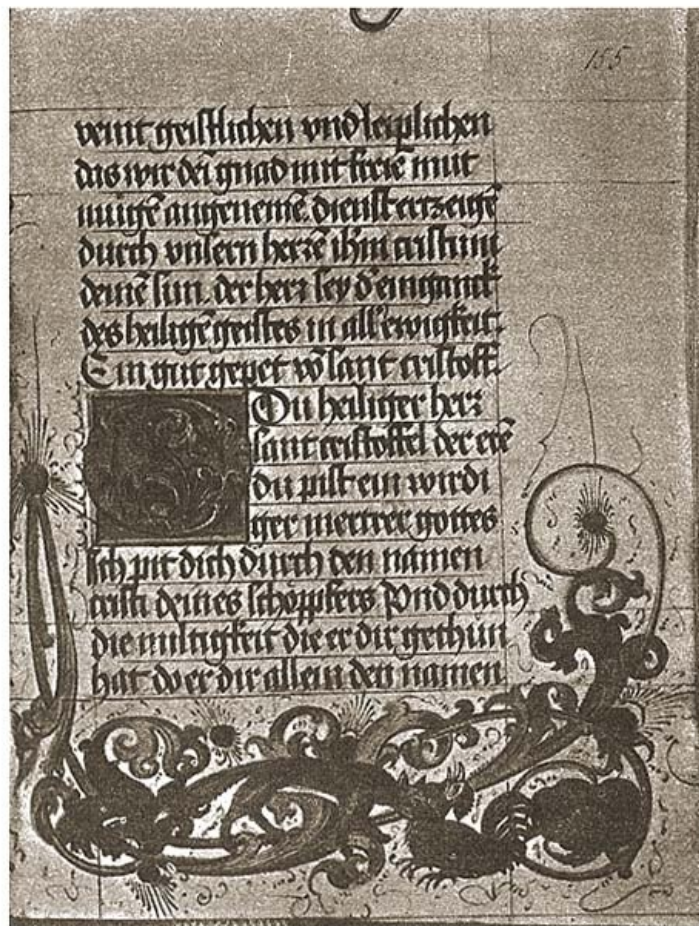 155
veint geistlichen vnd leiplichen
das wir dei gnad mit freiē mut
mügē angenemē dienst ertzeigē
durch vnsern herrē ihm cristum
deinē sun. der herr sey d'eingank
des heiligē geistes in all'ewigkeit.
Ein gut gepet vō sant cristoff.
Du heiliger herr
sant cristoffel der erē
du pist ein wirdi
ger mertrer gottes
Ich pit dich durch den namen
cristi deines schöppfers Vnd durch
die miltigkeit die er dir gethun
hat do er dir allein den namen